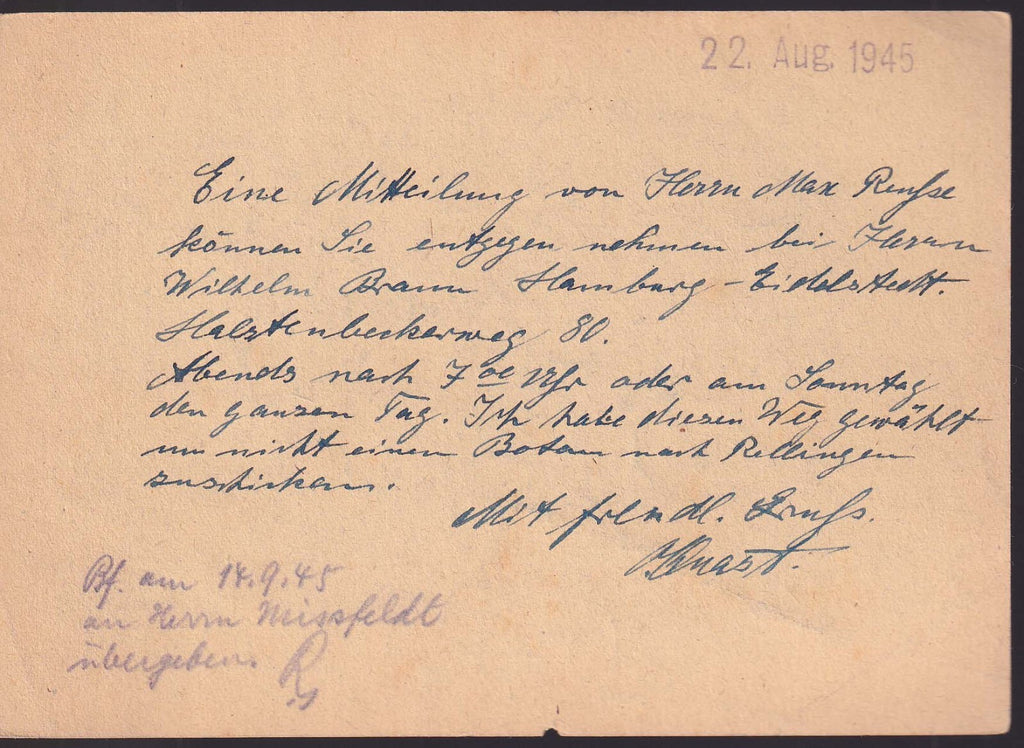 22. Aug. 1945
Eine Mitteilung von Herrn Max Reusse
können Sie entgegen nehmen bei Herrn
Wilhelm Braun Hamburg-Eidelstedt.
Halstenbeckerweg 80.
Abends nach 7 oo Uhr oder am Sonntag
den ganzen Tag. Ich habe diesen Weg gewählt
um nicht einen Boten nach Rellingen
zuschicken.
Mit freundl. Gruß.
Quast.
Bf. am 14.9.45
an Herrn Missfeldt
übergeben